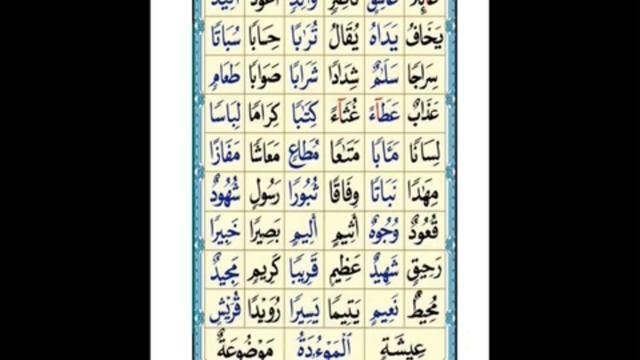 يَخَافُ يَدَاهُ يُقَالُ تُرَٰبًا حِسَابًا سُبَاتًا
سِرَاجًا سَلَٰمٌ شِدَادًا شَرَابًا صَوَابًا طَعَامٍ
عَذَابٌ عَطَآءً غُثَآءً كِتَٰبًا كِرَامًا لِبَاسًا
لِسَانًا مَـَٔابًا مَتَٰعًا مُطَاعٍ مَعَاشًا مَفَازًا
مِهَٰدًا نَبَاتًا وِفَاقًا ثُبُورًا رَسُولٍ شُهُودٌ
قُعُودٌ وُجُوهٌ أَثِيمٍ أَلِيمٍ بَصِيرًا خَبِيرًا
رَحِيقٍ شَهِيدٌ عَظِيمٍ قَرِيبًا كَرِيمٍ مَجِيدٌ
مُحِيطٌ نَعِيمٍ يَتِيمًا يَسِيرًا رُوَيْدًا قُرَيْشٍ
عِيشَةٍ الْمَوْءُدَةُ مَوْضُوعَةٌ